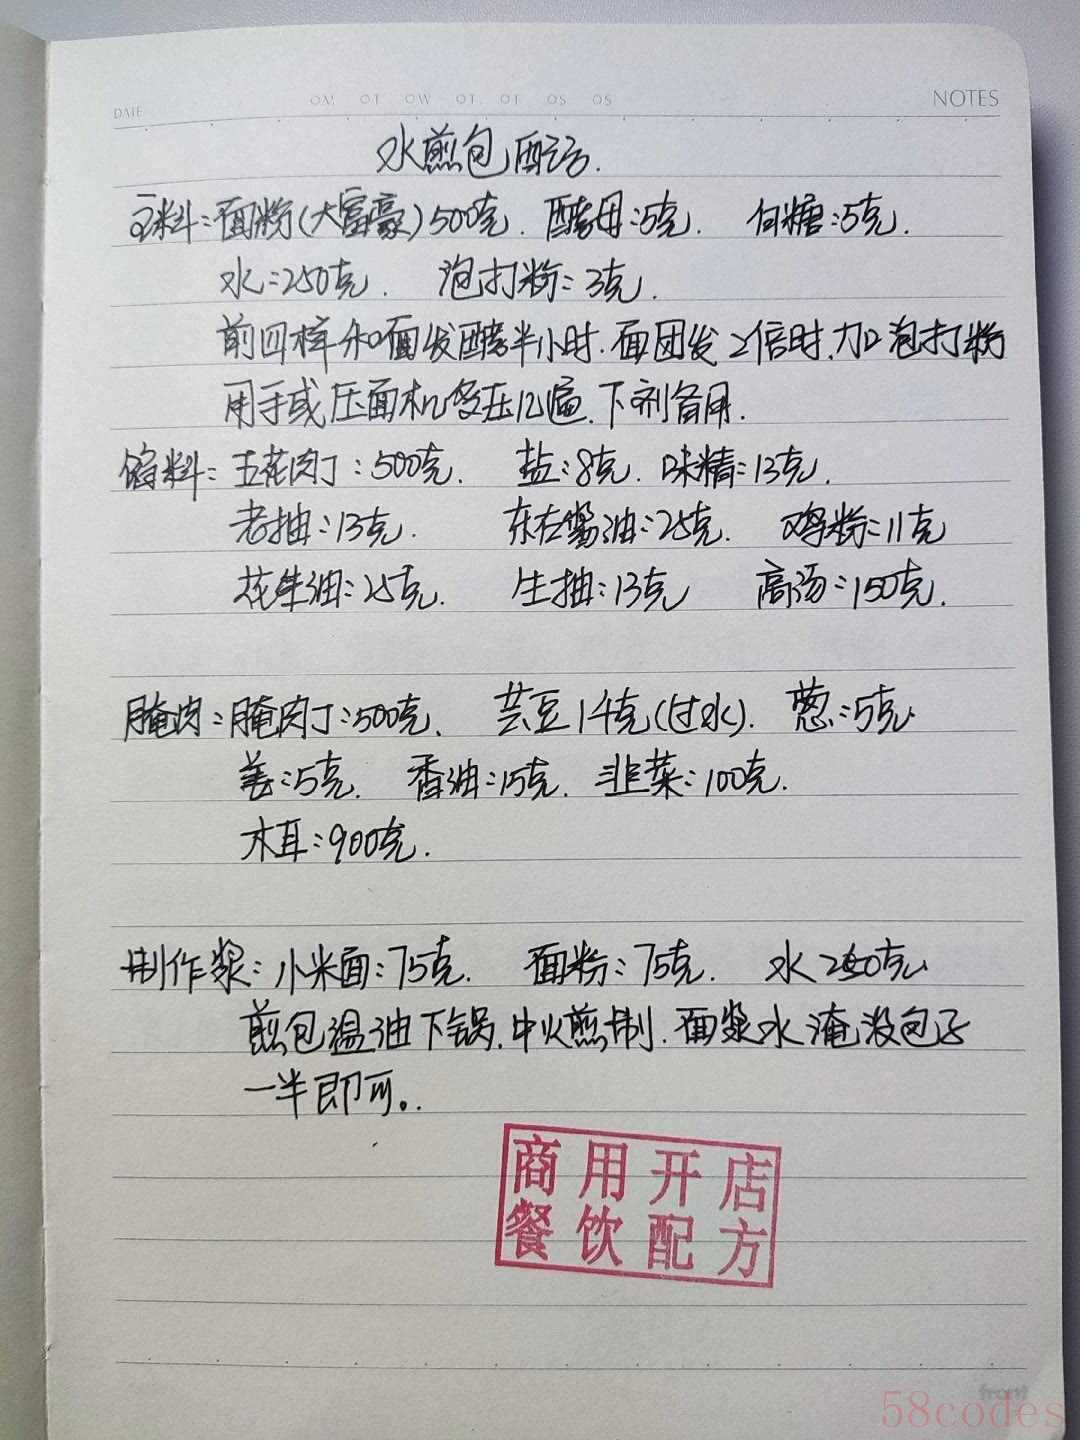 DATE OM OT OW OT OT OS OS NOTES
水煎包配方.
主料:面粉(大富豪)500克. 酵母:5克. 白糖:5克.
水:250克. 泡打粉:3克.
前四样和面发酵半小时.面团发2倍时.加泡打粉
用手或压面机多压几遍.下剂备用.
馅料:五花肉丁:500克. 盐:8克. 味精:13克.
老抽:13克. 东古酱油:25克. 鸡粉:11克
花生油:25克. 生抽:13克 高汤:150克.
腌肉:腌肉丁:500克. 芸豆14克(过水). 葱:5克
姜:5克. 香油:15克. 韭菜:100克.
木耳:900克.
制作浆:小米面:75克. 面粉:75克. 水 克
煎包温油下锅.中火煎制.面浆水淹没包子
一半即可。.
商用开店
餐饮配方
front
58codes